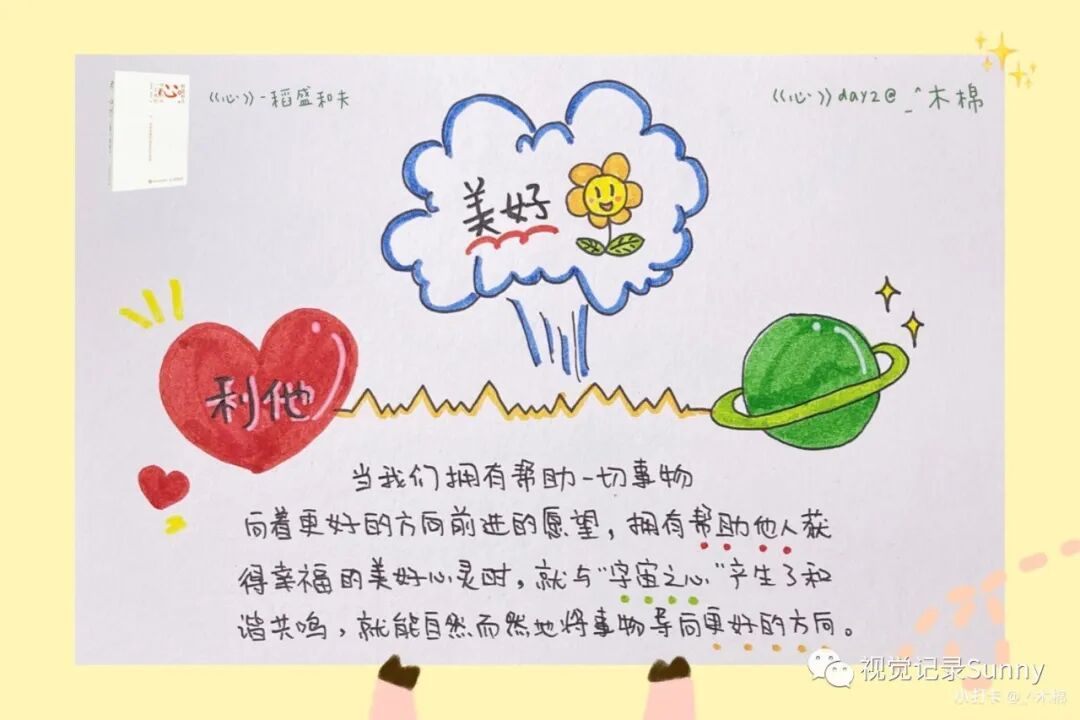 《心》-稻盛和夫
《心》day2@_^木棉
心
美好
利他
当我们拥有帮助一切事物
向着更好的方向前进的愿望，拥有帮助他人获
得幸福的美好心灵时，就与"宇宙之心"产生了和
谐共鸣，就能自然而然地将事物导向更好的方向。
视觉记录Sunny
小打卡@_^木棉